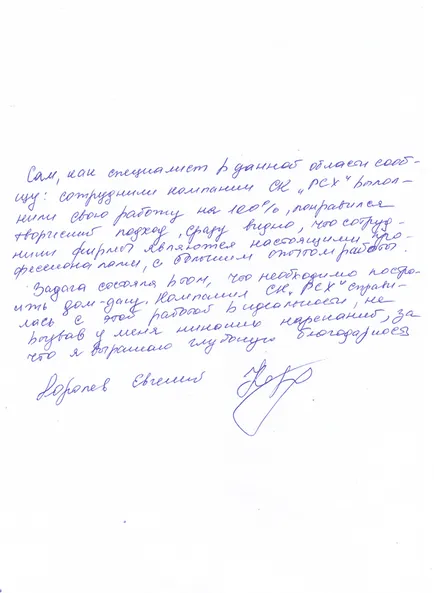 Сам, как специалист в данной области сооб-
щу: сотрудники компании СК "РСХ" выпол-
нили свою работу на 100%, понравился
творческий подход, сразу видно, что сотруд-
ники фирмы являются настоящими про-
фессионалами, с большим опытом работы.
Задача состояла в том, что необходимо постро-
ить дом-дачу. Компания СК "РСХ" справи-
лась с этой работой в идеальности, не
вызвав у меня никаких нареканий, за
что я выражаю глубокую благодарность
Королев Евгений